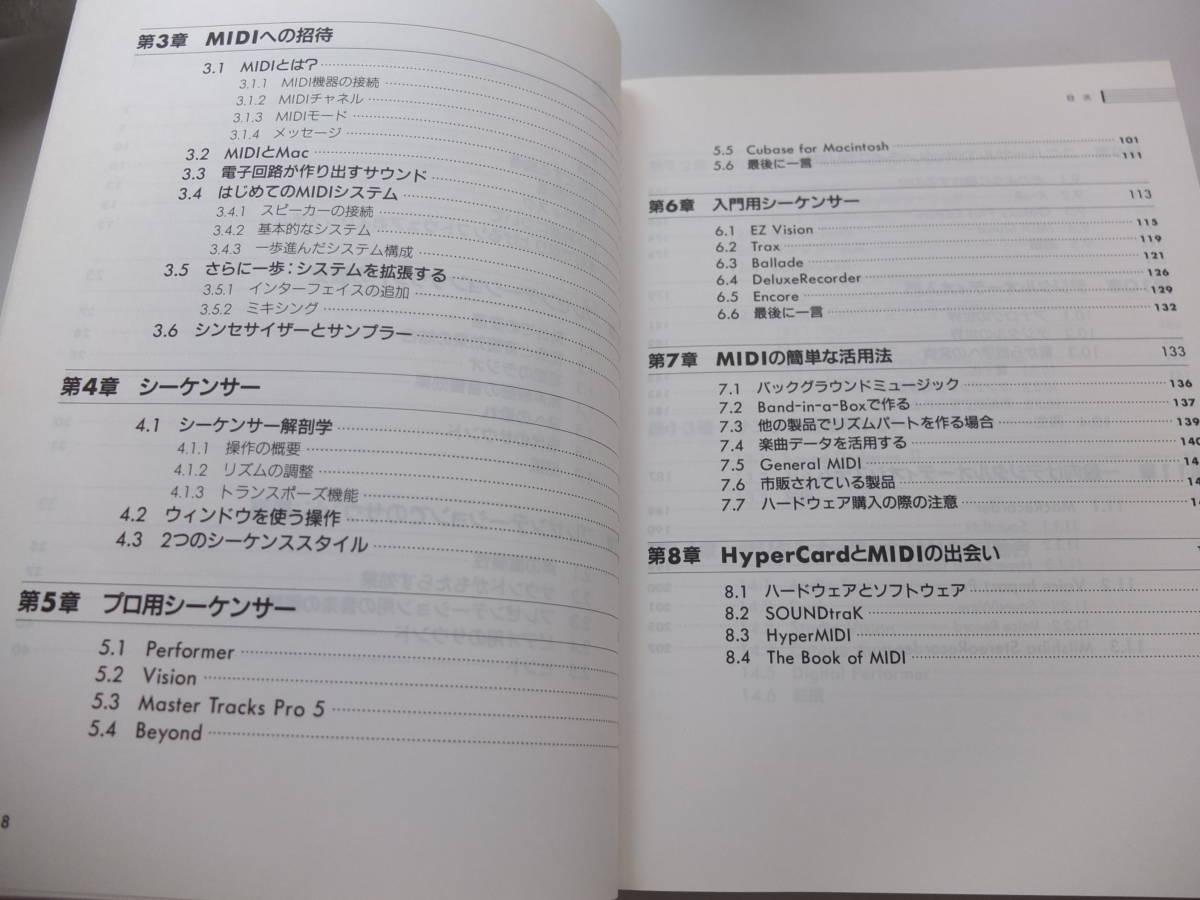 第3章 MIDIへの招待
3.1 MIDIとは?
3.1.1 MIDI機器の接続
3.1.2 MIDIチャネル
3.1.3 MIDIモード
3.1.4 メッセージ
3.2 MIDIとMac
3.3 電子回路が作り出すサウンド
3.4 はじめてのMIDIシステム
3.4.1 スピーカーの接続
3.4.2 基本的なシステム
3.4.3 一歩進んだシステム構成
3.5 さらに一歩:システムを拡張する
3.5.1 インターフェイスの追加
3.5.2 ミキシング
3.6 シンセサイザーとサンプラー
第4章 シーケンサー
4.1 シーケンサー解剖学
4.1.1 操作の概要
4.1.2 リズムの調整
4.1.3 トランスポーズ機能
4.2 ウィンドウを使う操作
4.3 2つのシーケンススタイル
第5章 プロ用シーケンサー
5.1 Performer
5.2 Vision
5.3 Master Tracks Pro 5
5.4 Beyond
8
目次
5.5 Cubase for Macintosh 101
5.6 最後に一言 111
第6章 入門用シーケンサー 113
6.1 EZ Vision 115
6.2 Trax 119
6.3 Ballade 121
6.4 DeluxeRecorder 126
6.5 Encore 129
6.6 最後に一言 132
第7章 MIDIの簡単な活用法 133
7.1 バックグラウンドミュージック 136
7.2 Band-in-a-Boxで作る 137
7.3 他の製品でリズムパートを作る場合 139
7.4 楽曲データを活用する 140
7.5 General MIDI 14
7.6 市販されている製品 14
7.7 ハードウェア購入の際の注意 1
第8章 HyperCardとMIDIの出会い 1
8.1 ハードウェアとソフトウェア
8.2 SOUNDtraK
8.3 HyperMIDI
8.4 The Book of MIDI